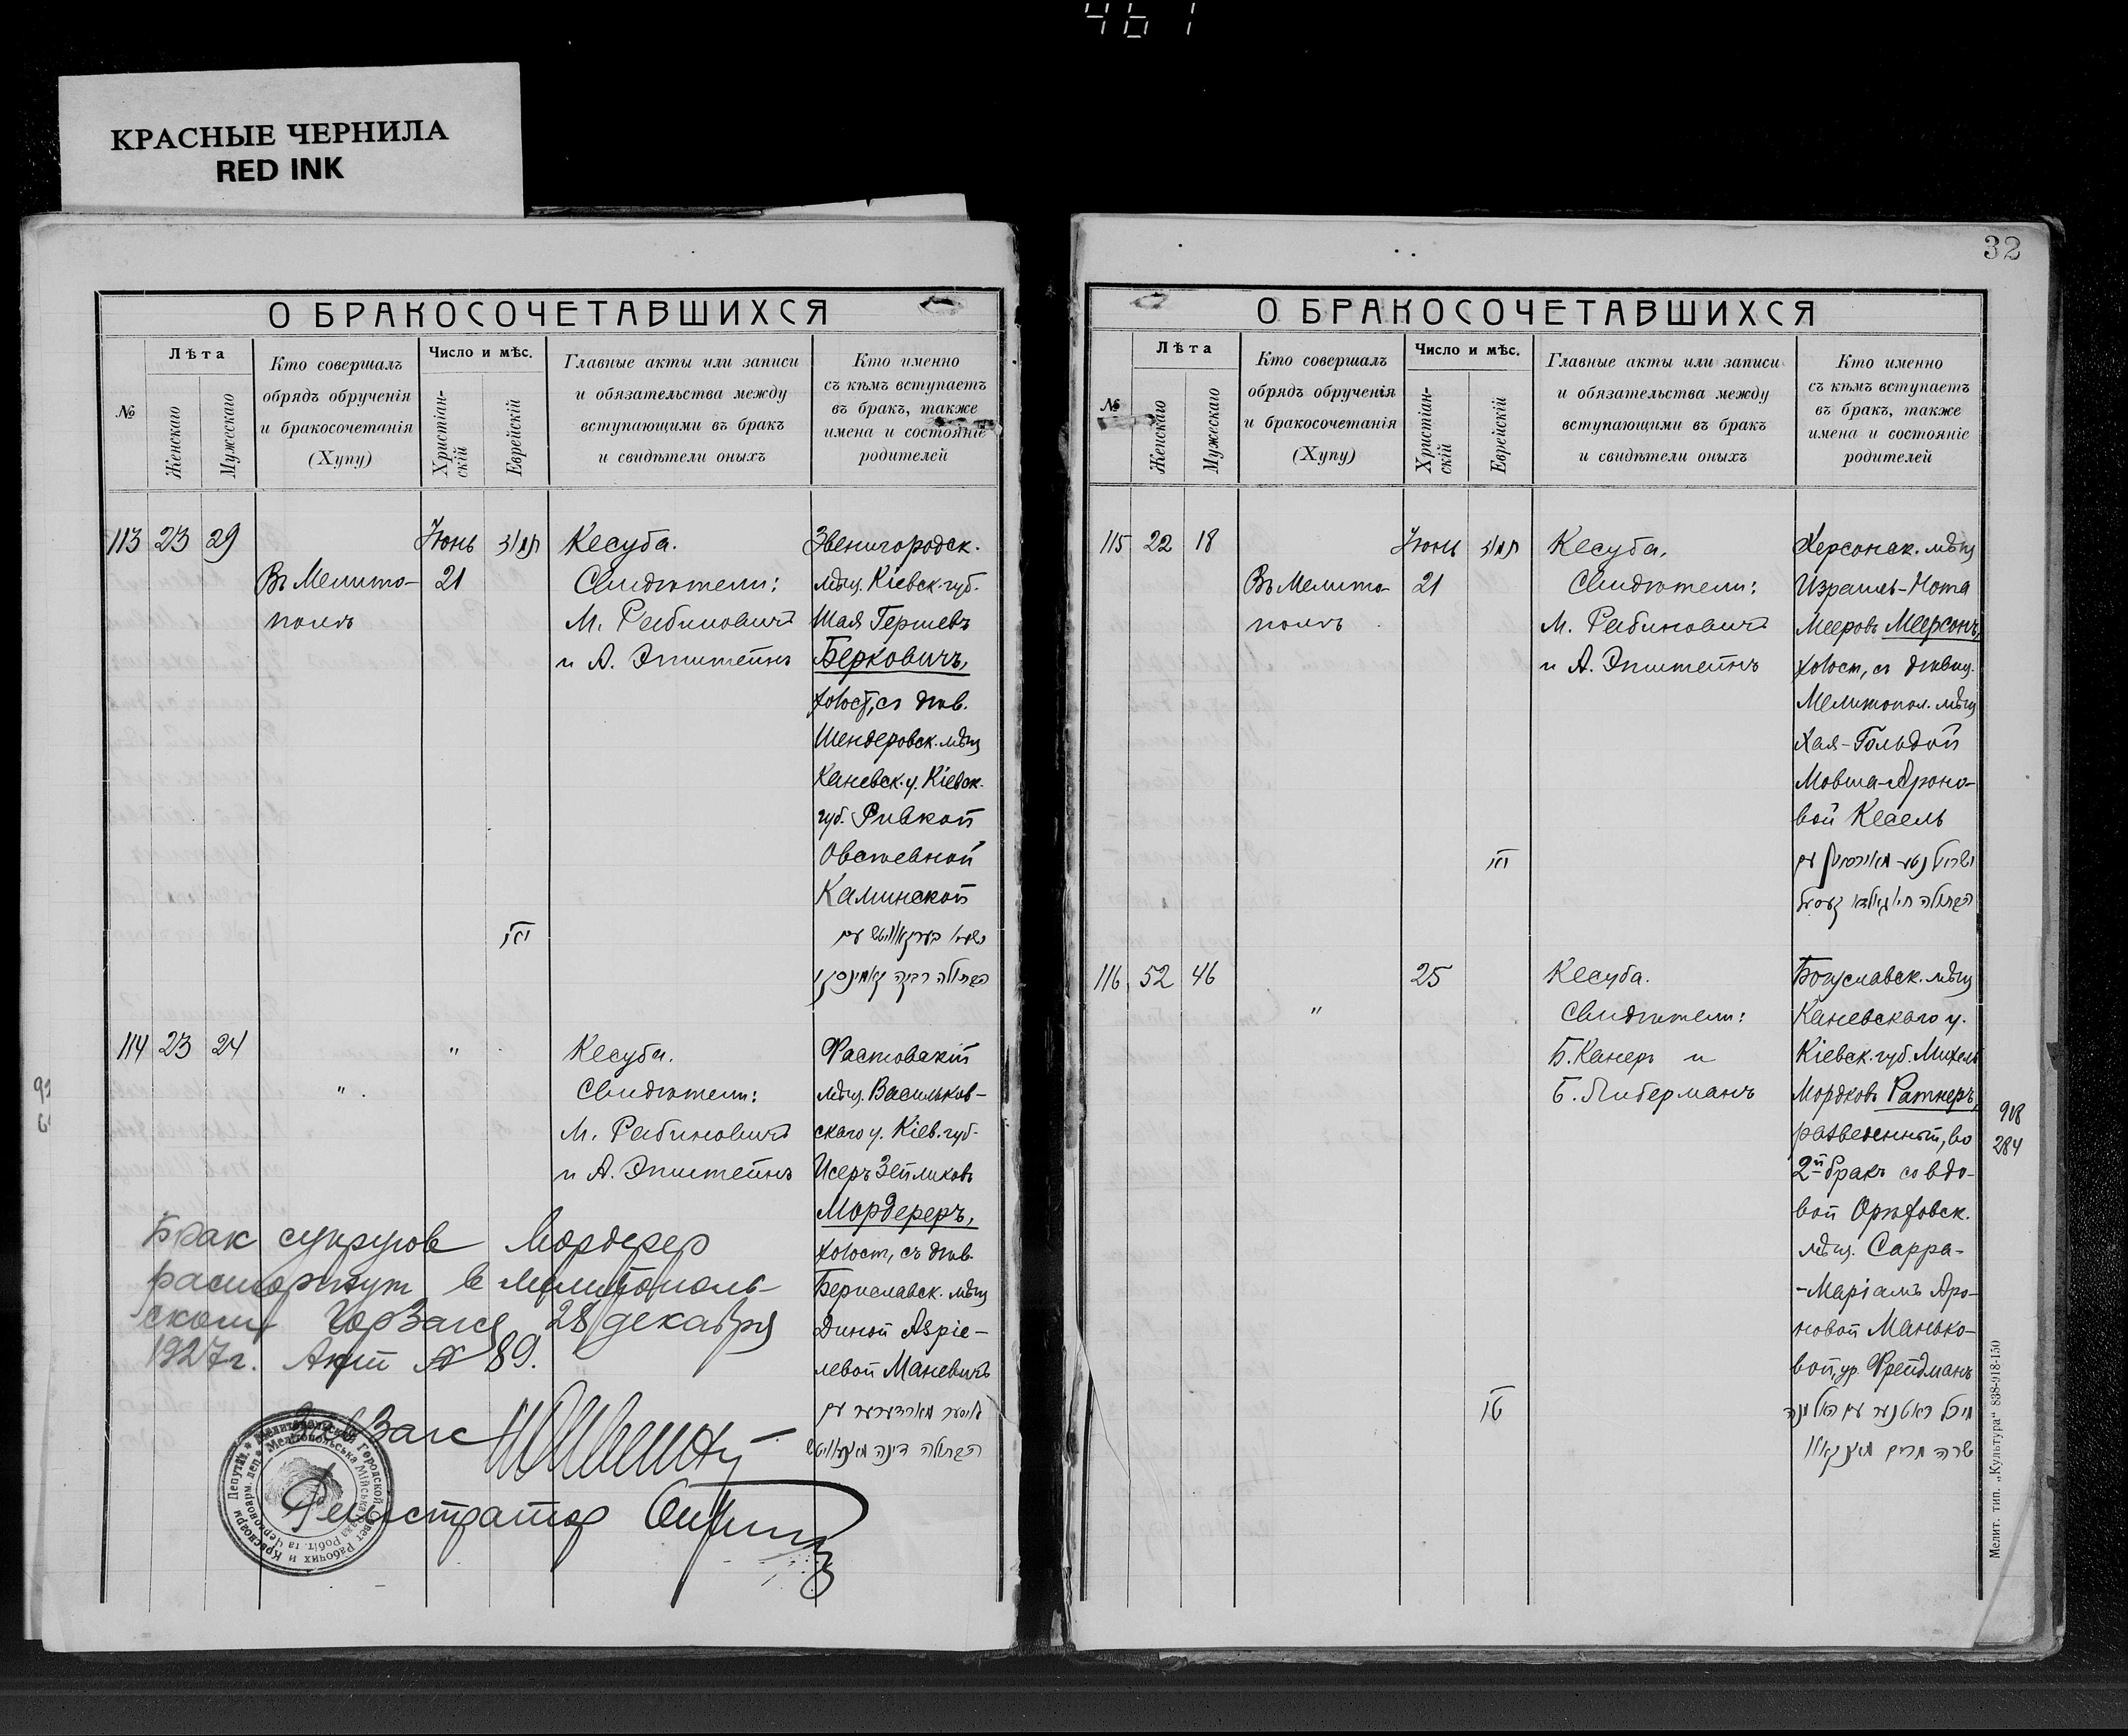 461
КРАСНЫЕ ЧЕРНИЛА
RED INK
О БРАКОСОЧЕТАВШИХСЯ
№
Лѣта
Женскаго
Мужескаго
Кто совершалъ
обрядъ обрученія
и бракосочетанія
(Хупу)
Число и мѣс.
Христіан-
скій
Еврейскій
Главные акты или записи
и обязательства между
вступающими въ бракъ
и свидѣтели оныхъ
Кто именно
съ кѣмъ вступаетъ
въ бракъ, также
имена и состояніе
родителей
113 23 29
Въ Мелито-
полѣ
Іюнь
21
Кесуба.
Свидѣтели:
М. Рабиновичъ
и А. Эпштейнъ
Звенигородск.
мѣщ. Кіевск. губ.
Шая Гершевъ
Берковичъ,
холост, съ дѣв.
Шендеровск. мѣщ
Каневск. у. Кіевск.
губ. Ривкой
Овсеевной
Каминской
114 23 24
"
"
Кесуба.
Свидѣтели:
М. Рабиновичъ
и А. Эпштейнъ
Фастовскій
мѣщ. Васильков-
скаго у. Кіев. губ.
Исеръ Зейликовъ
Мордереръ,
холост, съ дѣв.
Бериславск. мѣщ
Диной Азріе-
левой Маневичъ
Брак супругов Мордерер
расторгнут в Мелитополь-
ском ГорЗагсе 28 декабря
1927г. Акт № 89.
ЗавЗагс
Регистратор
32
О БРАКОСОЧЕТАВШИХСЯ
№
Лѣта
Женскаго
Мужескаго
Кто совершалъ
обрядъ обрученія
и бракосочетанія
(Хупу)
Число и мѣс.
Христіан-
скій
Еврейскій
Главные акты или записи
и обязательства между
вступающими въ бракъ
и свидѣтели оныхъ
Кто именно
съ кѣмъ вступаетъ
въ бракъ, также
имена и состояніе
родителей
115 22 18
Въ Мелито-
полѣ
Іюнь
21
Кесуба.
Свидѣтели:
М. Рабиновичъ
и А. Эпштейнъ
Херсонск. мѣщ
Израиль-Нота
Мееровъ Меерсонъ,
холост, съ дѣвиц.
Мелитопол. мѣщ
Хая-Гольдой
Мовша-Ароно-
вой Кесель
116 52 46
"
25
Кесуба.
Свидѣтели:
Б. Канеръ и
Б. Либерманъ
Богуславск. мѣщ
Каневскаго у.
Кіевск. губ. Михель
Мордковъ Ратнеръ,
разведенный, во
2й бракъ со вдо-
вой Орѣховск.
мѣщ. Сарра-
-Маріамъ Аро-
новой Манько-
вой, ур. Фрейдманъ
918
284
Мелит. тип. „Культура" 838-918-150